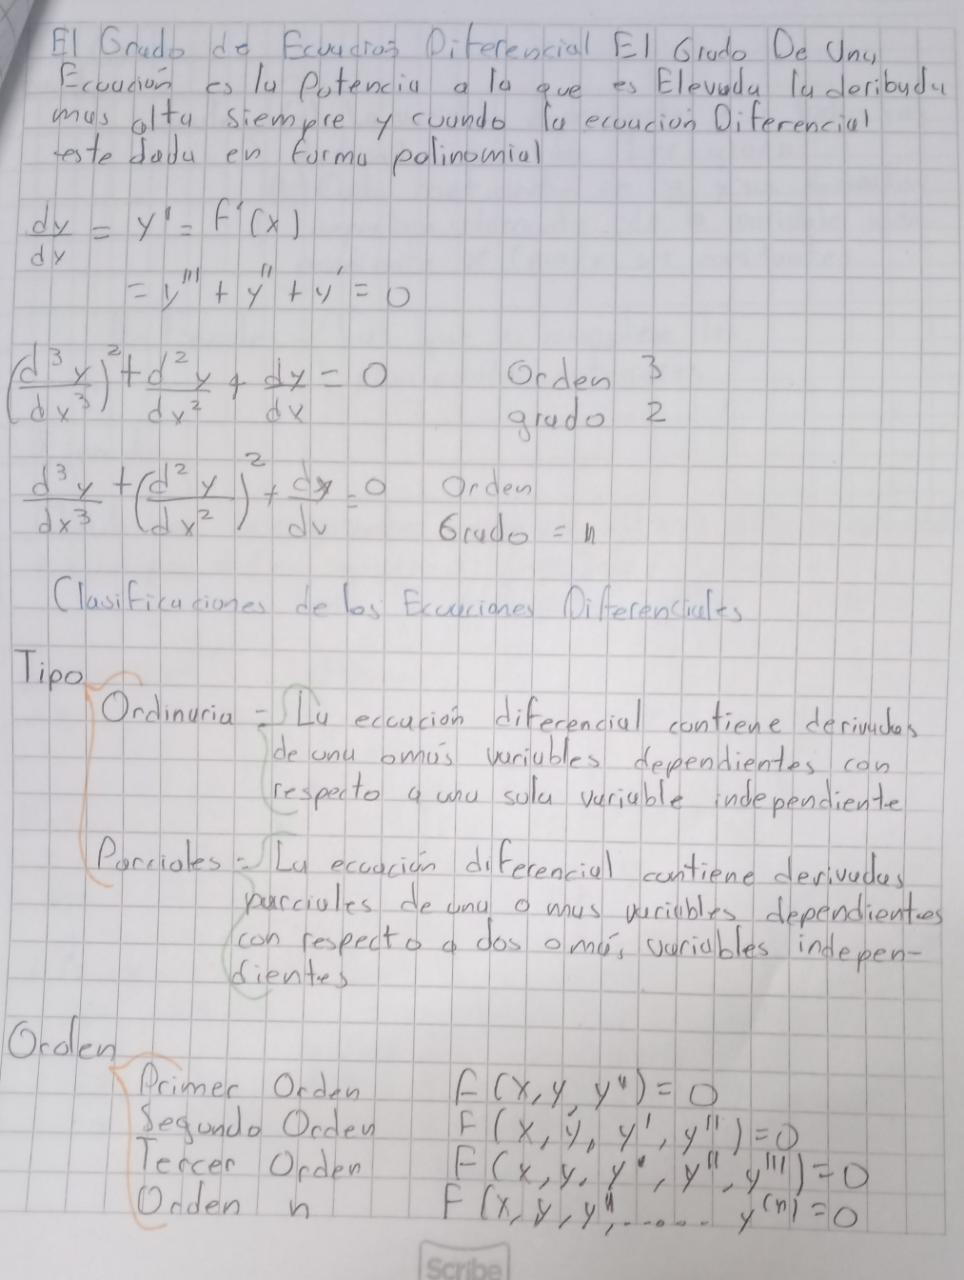 El Grado de Ecuacion Diferencial El Grado De Una
Ecuación es la Potencia a la que es Elevada la deribada
mas alta siempre y cuando la ecuacion Diferencial
este dada en forma polinomial
dy/dx = y' = F'(x)
= y''' + y'' + y' = 0
(d³y/dx³)² + d²y/dx² + dy/dx = 0 Orden 3
grado 2
d³y/dx³ + (d²y/dx²)² + dy/dx = 0 Orden
Grado = n
Clasificaciones de las Ecuaciones Diferenciales
Tipo
Ordinaria = La eccuación diferencial contiene derivadas
de una o más variables dependientes con
respecto a una sola variable independiente
Parciales = La ecuación diferencial contiene derivadas
parciales de una o mas variables dependientes
con respecto a dos o más variables indepen-
dientes
Orden
Primer Orden F(x, y, y') = 0
Segundo Orden F(x, y, y', y'') = 0
Tercer Orden F(x, y, y', y'', y''') = 0
Orden n F(x, y, y', ...... y⁽ⁿ⁾ = 0
Scribe